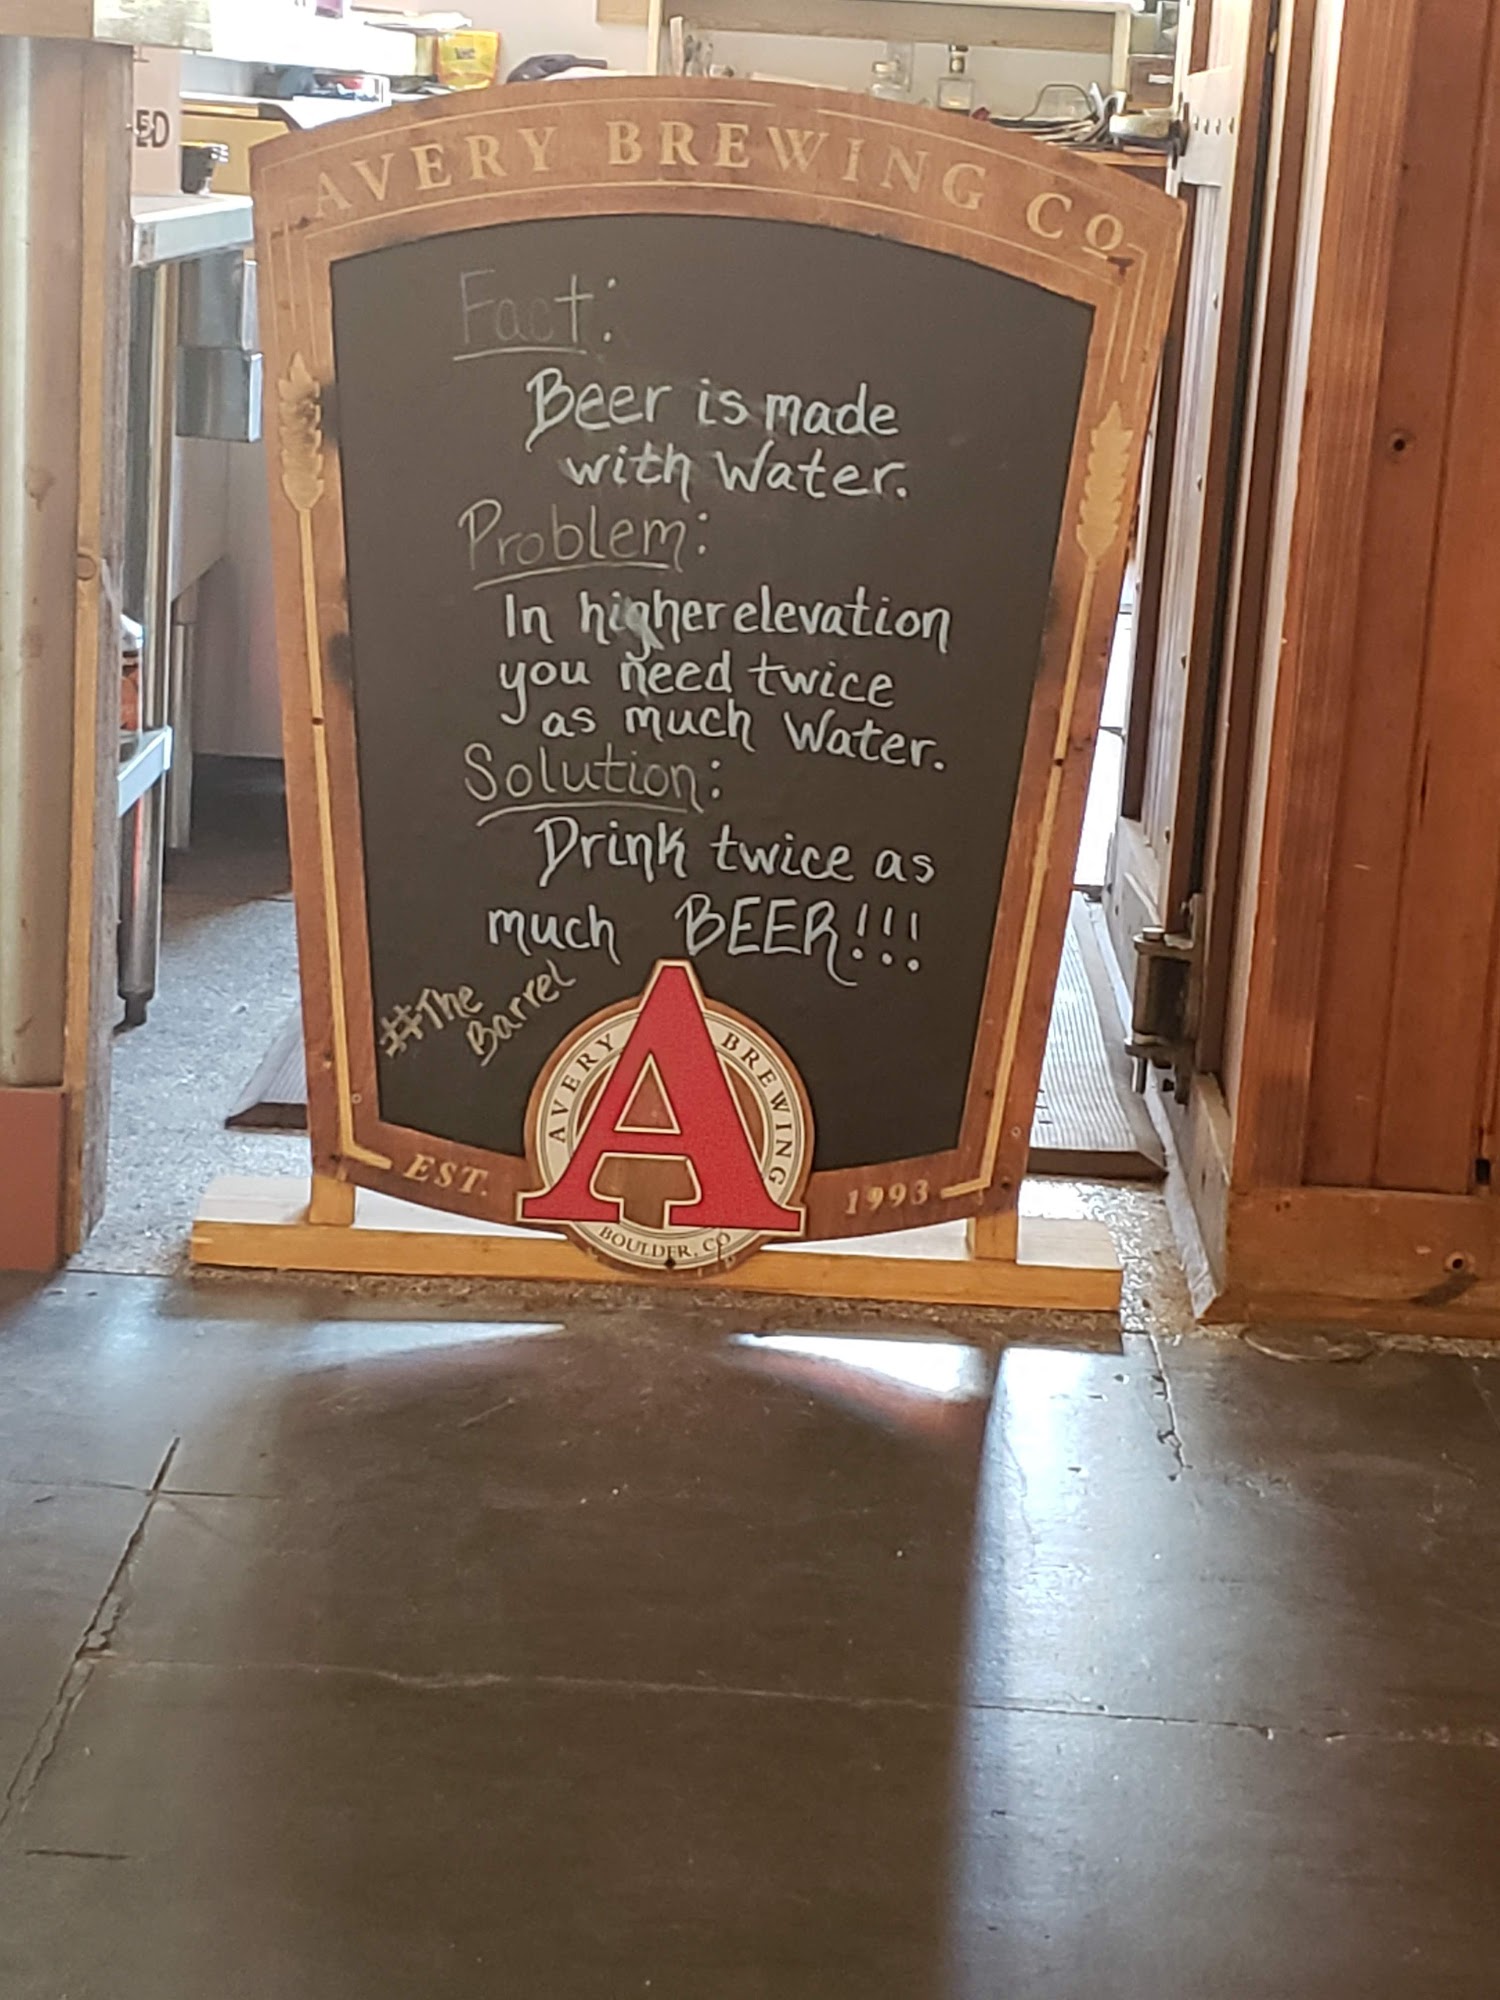 AVERY BREWING CO
Fact:
Beer is made
with Water.
Problem:
In higher elevation
you need twice
as much Water.
Solution:
Drink twice as
much BEER!!!
#The
Barrel
AVERY BREWING
BOULDER, CO
EST. 1993